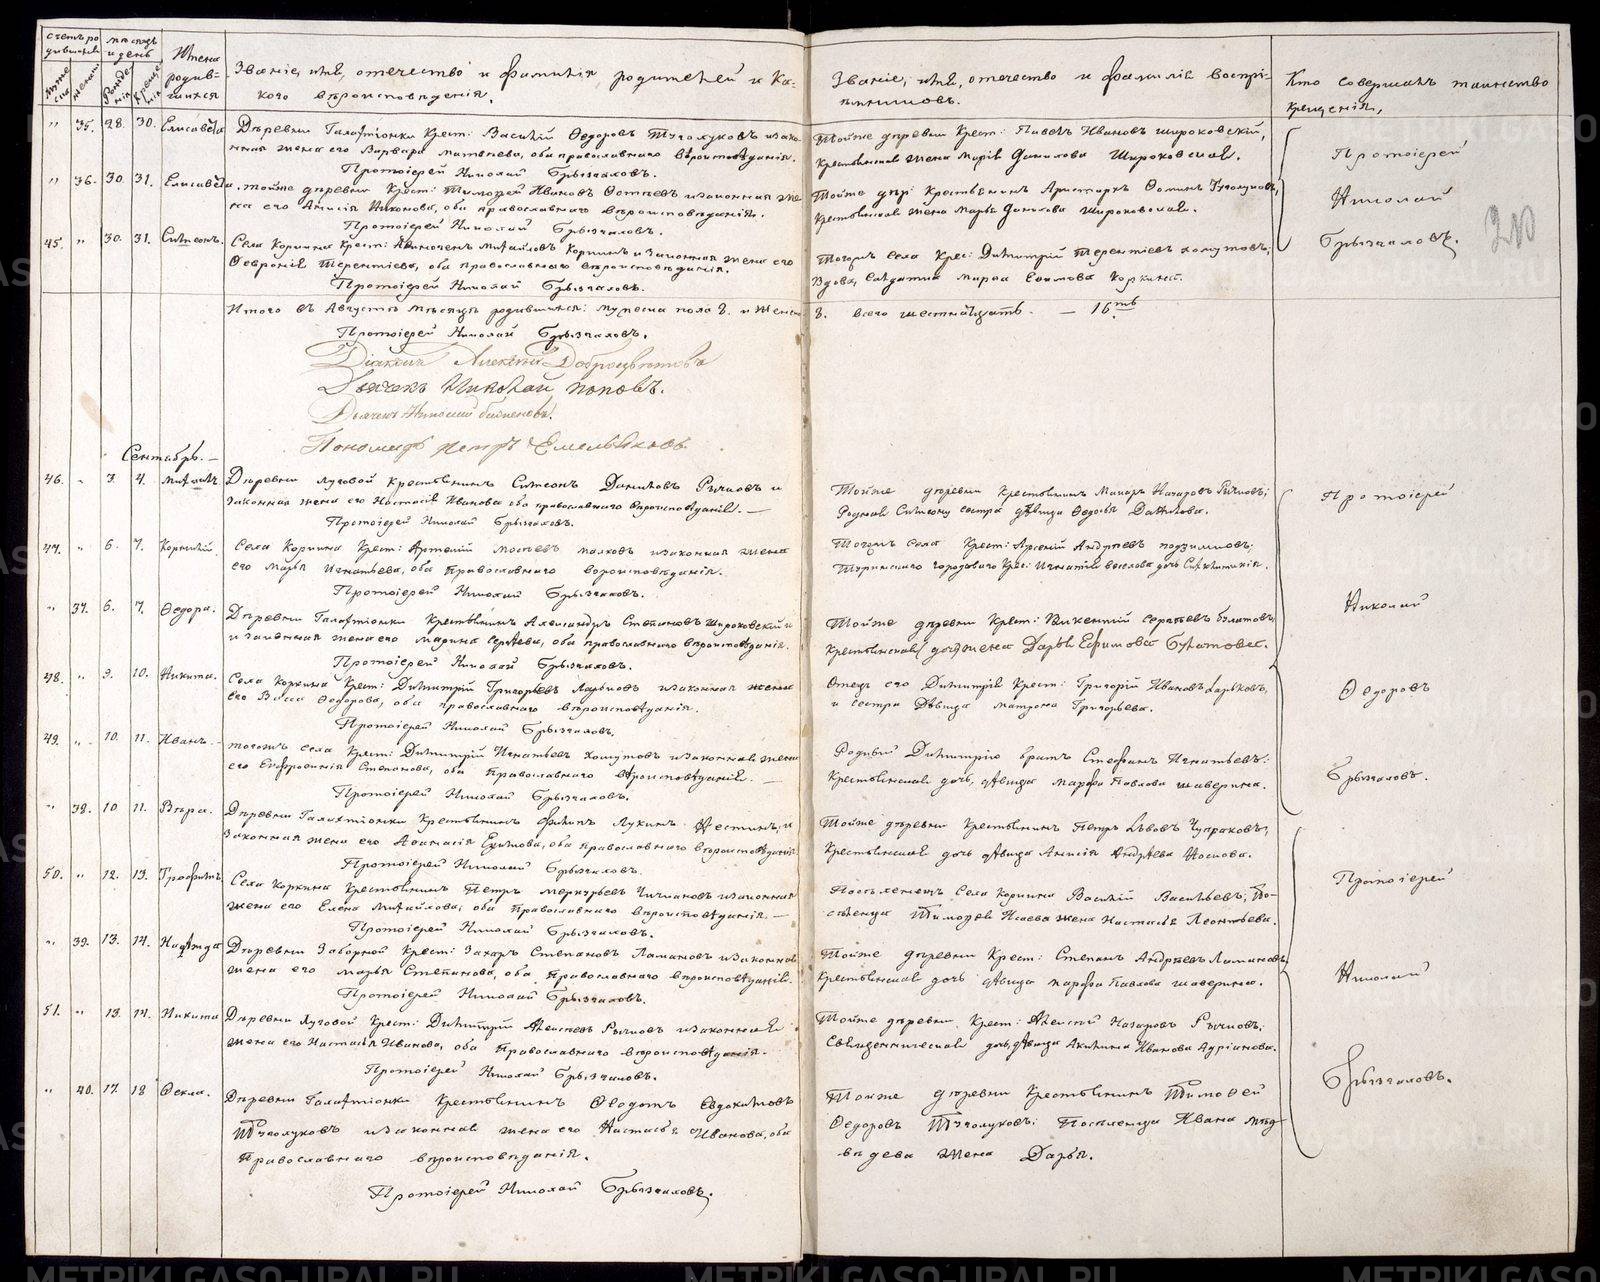 Счетъ родившихся
мѣсяцъ и день
Имена родившихся
Званіе, имя, отечество и фамилія родителей и какого вѣроисповѣданія.
Званіе, имя, отечество и фамиліи воспріемниковъ.
Кто совершалъ таинство крещенія,
" 35. 28. 30. Елисавета Деревни Галактіонки Крест: Василій Ѳедоровъ
жена его Варвара Матвѣева, оба православнаго вѣроисповѣданія.
Тойже деревни Крест: Павелъ Ивановъ Широковскій,
крестьянская жена Марія Данилова Широковская.
Протоіерей Николай Брызгаловъ.
" 36. 30. 31. Елисавета. тойже деревни Крест: Тимофей Ивановъ
его Анисія Никонова, оба православнаго вѣроисповѣданія.
Тойже дер: крестьянинъ Аристархъ Ѳоминъ
крестьянская жена Марья Данилова Широковская.
Протоіерей Николай Брызгаловъ.
45. " 30. 31. Симеонъ. Села Коркина Крест: Михайловъ Коркинъ и законная жена его
Ѳевронія Терентіева, оба православнаго вѣроисповѣданія.
Тогожъ села Крес: Димитрій Терентіевъ Хомутовъ;
Вдова, солдатка Марѳа Ефимова Коркина.
Протоіерей Николай Брызгаловъ.
Протоіерей
Николай
Брызгаловъ.
20
Итого въ Августѣ мѣсяцѣ родившихся: мужеска пола 8. и женска 8. всего шестнадцать. — 16ть
Протоіерей Николай Брызгаловъ.
Діаконъ Алексѣй Доброцвѣтовъ
Дьячекъ Николай Поповъ.
Дьячекъ Николай
Пономарь Петръ Емельяновъ
Сентябрь. —
46. " 3 4. Михаилъ. Деревни Луговой Крестьянинъ Симеонъ Даниловъ Рычковъ и
законная жена его Настасія Иванова оба православнаго вѣроисповѣданія. —
Тойже деревни Крестьянинъ Макаръ Назаровъ Рычковъ;
Родная Симеону сестра дѣвица Ѳедосья Данилова.
Протоіерей Николай Брызгаловъ.
47. " 6. 7. Корнилій. Села Коркина Крест: Артемій и законная жена
его Марья Игнатьева, оба православнаго вѣроисповѣданія.
Тогожъ села Крест: Арсеній Андреевъ Подзимковъ;
Протоіерей Николай Брызгаловъ.
" 37. 6. 7. Ѳедора. Деревни Галактіонки Крестьянинъ Александръ Степановъ Широковскій и
и законная жена его Марина Сергѣева, оба православнаго вѣроисповѣданія.
Тойже деревни Крест: Викентій Сергѣевъ Булатовъ;
Крестьянская жена Дарья Ефимова Булатова.
Протоіерей Николай Брызгаловъ.
48. " 9. 10. Никита. Села Коркина Крест: Димитрій Григорьевъ Ларьковъ и законная жена
его Васса Ѳедорова, оба православнаго вѣроисповѣданія.
Отецъ его Димитрія Крест: Григорій Ивановъ Ларьковъ,
и сестра Дѣвица Матрона Григорьева.
Протоіерей Николай Брызгаловъ.
49. " 10. 11. Иванъ. тогожъ села Крест: Димитрій Игнатьевъ Хомутовъ и законная жена
его Евфросинія Степанова, оба православнаго вѣроисповѣданія. —
Родный Димитрію братъ Стефанъ Игнатьевъ:
Крестьянская дочь, дѣвица Марѳа Павлова Шаверина.
Протоіерей Николай Брызгаловъ.
Протоіерей
Николай
Ѳедоровъ
Брызгаловъ.
" 38. 10 11. Вѣра. Деревни Галактіонки Крестьянинъ Филипъ Лукинъ и
законная жена его Аѳанасія Ефимова, оба православнаго вѣроисповѣданія
Тойже деревни Крестьянинъ Петръ Львовъ Чупраковъ,
Крестьянская дочь дѣвица Анисія Андреева Носкова.
Протоіерей Николай Брызгаловъ.
50. " 12. 13. Трофимъ. Села Коркина Крестьянинъ Петръ Меркурьевъ и законная
жена его Елена Михайлова, оба православнаго вѣроисповѣданія. —
Поселенецъ Села Коркина Василій Васильевъ; Поселенца
Тимофея жена Настасья Леонтьева.
Протоіерей Николай Брызгаловъ.
" 39. 13. 14. Надежда Деревни Заборной Крест: Захаръ Степановъ Ламановъ и законная
жена его Марья Степанова, оба православнаго вѣроисповѣданія.
Тойже деревни Крест: Степанъ Андреевъ Ламановъ,
Крестьянская дочь дѣвица Марѳа Павлова Шаверина.
Протоіерей Николай Брызгаловъ.
51. " 13. 14. Никита Деревни Луговой Крест: Димитрій Алексѣевъ Рычковъ и законная
жена его Настасья Иванова, оба православнаго вѣроисповѣданія.
Тойже деревни, Крест: Алексѣй Назаровъ Рычковъ;
Священническая дочь, дѣвица Акилина Иванова Адріанова.
Протоіерей Николай Брызгаловъ.
" 40. 17. 18 Ѳекла. Деревни Галактіонки Крестьянинъ Ѳедотъ Евдокимовъ
и законная жена его Настасья Иванова, оба
православнаго вѣроисповѣданія.
Тойже деревни Крестьянинъ Тимоѳей
Ѳедоровъ Поселенца Ивана Медвѣдева
жена Дарья.
Протоіерей Николай Брызгаловъ.
Протоіерей
Николай
Брызгаловъ.
METRIKI.GASO-URAL.RU